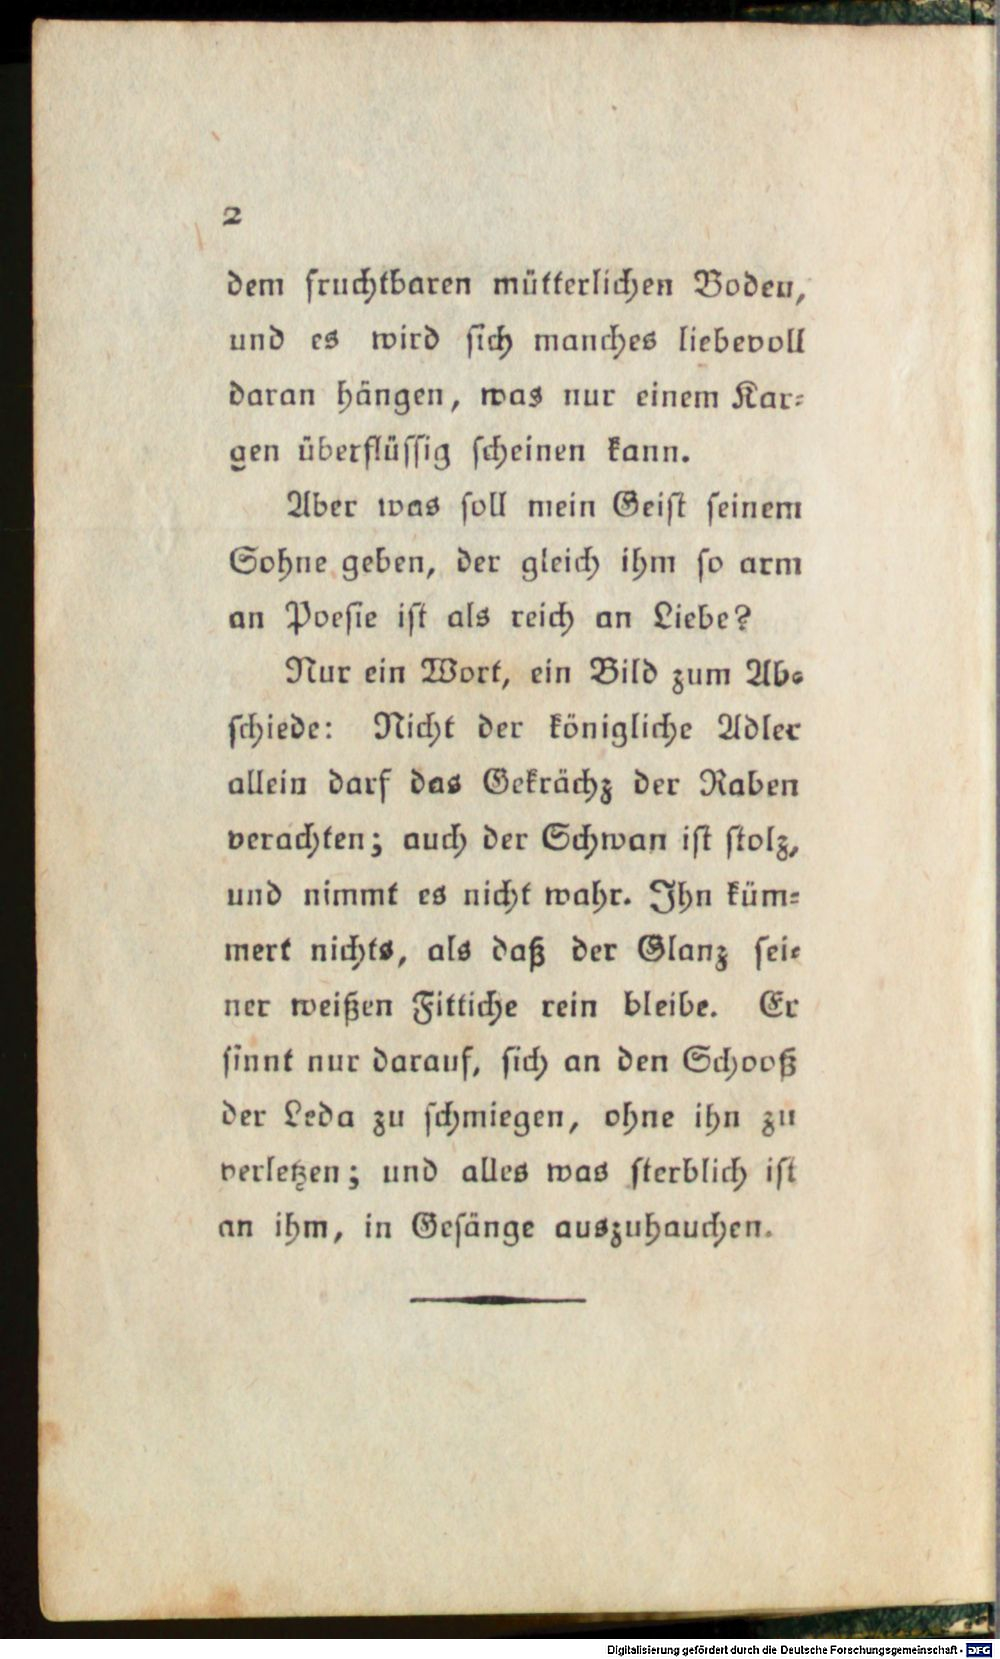 2
dem fruchtbaren mütterlichen Boden,
und es wird sich manches liebevoll
daran hängen, was nur einem Kar-
gen überflüssig scheinen kann.
Aber was soll mein Geist seinem
Sohne geben, der gleich ihm so arm
an Poesie ist als reich an Liebe?
Nur ein Wort, ein Bild zum Ab-
schiede: Nicht der königliche Adler
allein darf das Gekrächz der Raben
verachten; auch der Schwan ist stolz,
und nimmt es nicht wahr. Ihn küm-
mert nichts, als daß der Glanz sei-
ner weißen Fittiche rein bleibe. Er
sinnt nur darauf, sich an den Schooß
der Leda zu schmiegen, ohne ihn zu
verletzen; und alles was sterblich ist
an ihm, in Gesänge auszuhauchen.
Digitalisierung gefördert durch die Deutsche Forschungsgemeinschaft - DFG